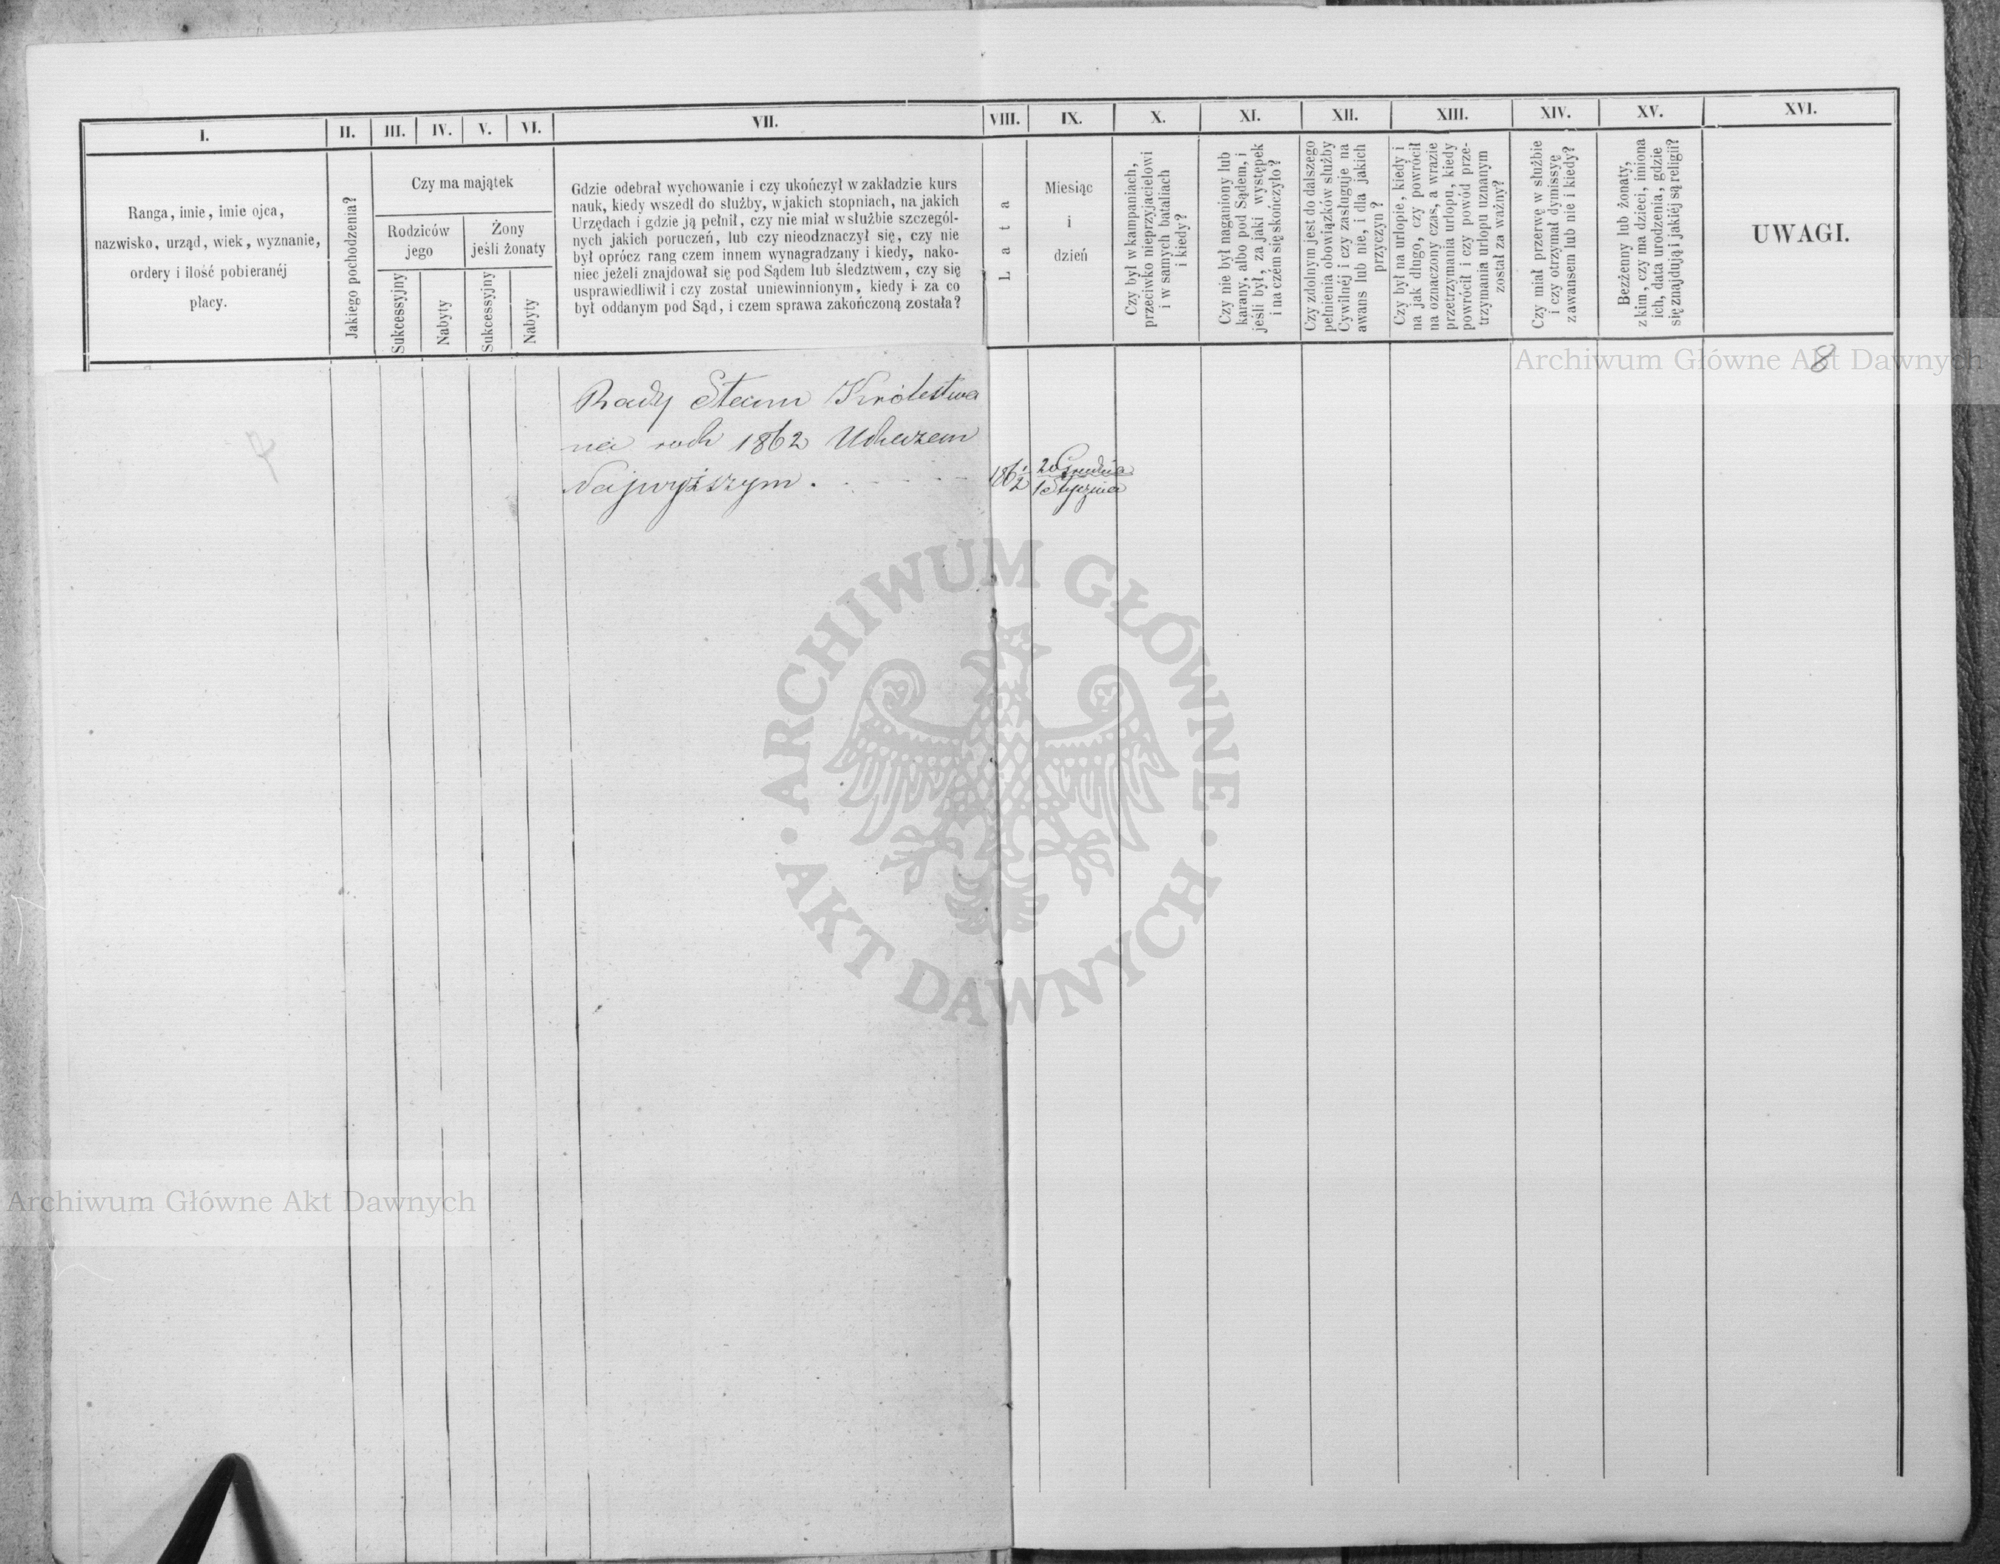 I.
II.
III.
IV.
V.
VI.
VII.
VIII.
IX.
X.
XI.
XII.
XIII.
XIV.
XV.
XVI.
Ranga, imie, imie ojca,
nazwisko, urząd, wiek, wyznanie,
ordery i ilość pobieranéj
płacy.
Jakiego pochodzenia?
Czy ma majątek
Rodziców
jego
Żony
jeśli żonaty
Sukcessyjny
Nabyty
Sukcessyjny
Nabyty
Gdzie odebrał wychowanie i czy ukończył w zakładzie kurs
nauk, kiedy wszedł do służby, w jakich stopniach, na jakich
Urzędach i gdzie ją pełnił, czy nie miał w służbie szczegól-
nych jakich poruczeń, lub czy nieodznaczył się, czy nie
był oprócz rang czem innem wynagradzany i kiedy, nako-
niec jeżeli znajdował się pod Sądem lub śledztwem, czy się
usprawiedliwił i czy został uniewinnionym, kiedy i za co
był oddanym pod Sąd, i czem sprawa zakończoną została?
Lata
Miesiąc
i
dzień
Czy był w kampaniach,
przeciwko nieprzyjacielowi
i w samych bataliach
i kiedy?
Czy nie był naganiony lub
karany, albo pod Sądem, i
jeśli był, za jaki występek
i na czem się skończyło?
Czy zdolnym jest do dalszego
pełnienia obowiązków służby
Cywilnéj i czy zasługuje na
awans lub nie, i dla jakich
przyczyn?
Czy był na urlopie, kiedy i
na jak długo, czy powrócił
na oznaczony czas, a w razie
przetrzymania urlopu, kiedy
powrócił i czy powód prze-
trzymania urlopu uznanym
został za ważny?
Czy miał przerwę w służbie
i czy otrzymał dymissyę
z awansem lub nie i kiedy?
Bezżenny lub żonaty,
z kim, czy ma dzieci, imiona
ich, data urodzenia, gdzie
się znajdują i jakiéj są religii?
UWAGI.
8
Rady Stanu Królestwa
na rok 1862 Ukazem
Najwyższym.
186 1/2
20 Grudnia
1 Stycznia
Archiwum Główne Akt Dawnych
ARCHIWUM GŁÓWNE · AKT DAWNYCH ·
Archiwum Główne Akt Dawnych